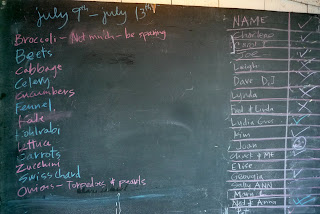 july 9th – july 13th
Broccoli – Not much – be sparing
Beets
Cabbage
Celery
Cucumbers
Fennel
Kale
Kohlrabi
Lettuce
Carrots
Zucchini
Swisschard
Onions – Torpedoes & pearls
NAME
Charlene
Joe
Leigh
Dave D.J
Lynda
Fred & Linda
Lydia
Kim
Joan
Elise
Georgia
Sally ANN
Ned & Anna
Pat